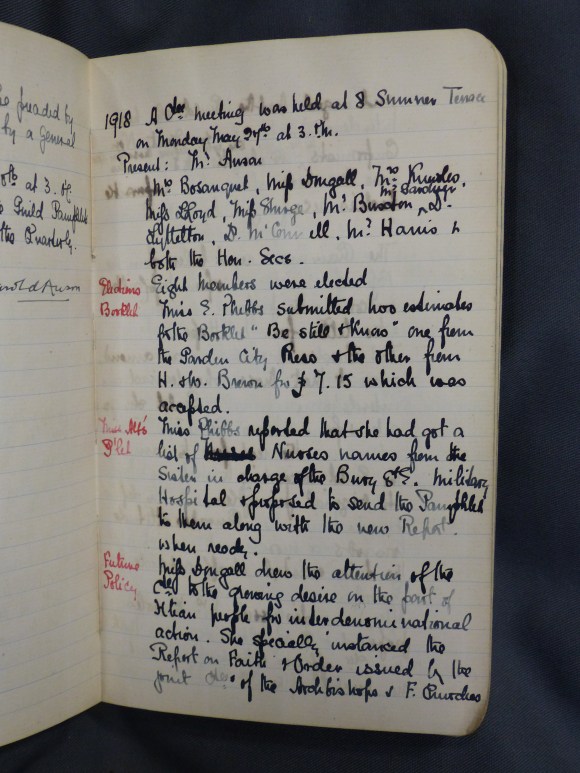 he preaded by
by a General
at 3. P.
Guild Pamphlet
the Quarterly.
Harold Anson
1918 A Ctee meeting was held at 8 Sumner Terrace
on Monday May 27th at 3. P.M.
Present: Mr Anson
Mrs Bosanquet, Miss Dougall, Mrs Knowles,
Mr Gardner
Miss Lloyd, Miss Sturge, Mr Buxton, Dr
Lyttelton, Dr McConnell, Mr Harris &
both the Hon. Secs.
Elections Eight Members were elected
Booklet Miss E. Phibbs submitted two estimates
for the Booklet "Be still & Know" one from
the Garden City Press & the other from
H. & W. Brown for £7.15 which was
accepted.
Miss Phibbs reported that she had got a
P'let list of Nurses names from the
Sister in charge of the Bury St E. Military
Hospital & proposed to send the Pamphlet
to them along with the new Report
when ready.
Future Miss Dougall drew the attention of the
Policy Ctee to the growing desire on the part of
Xtian people for interdenominational
action. She specially instanced the
Report on Faith & Order issued by the
joint Ctee of the Archbishops & F. Churches